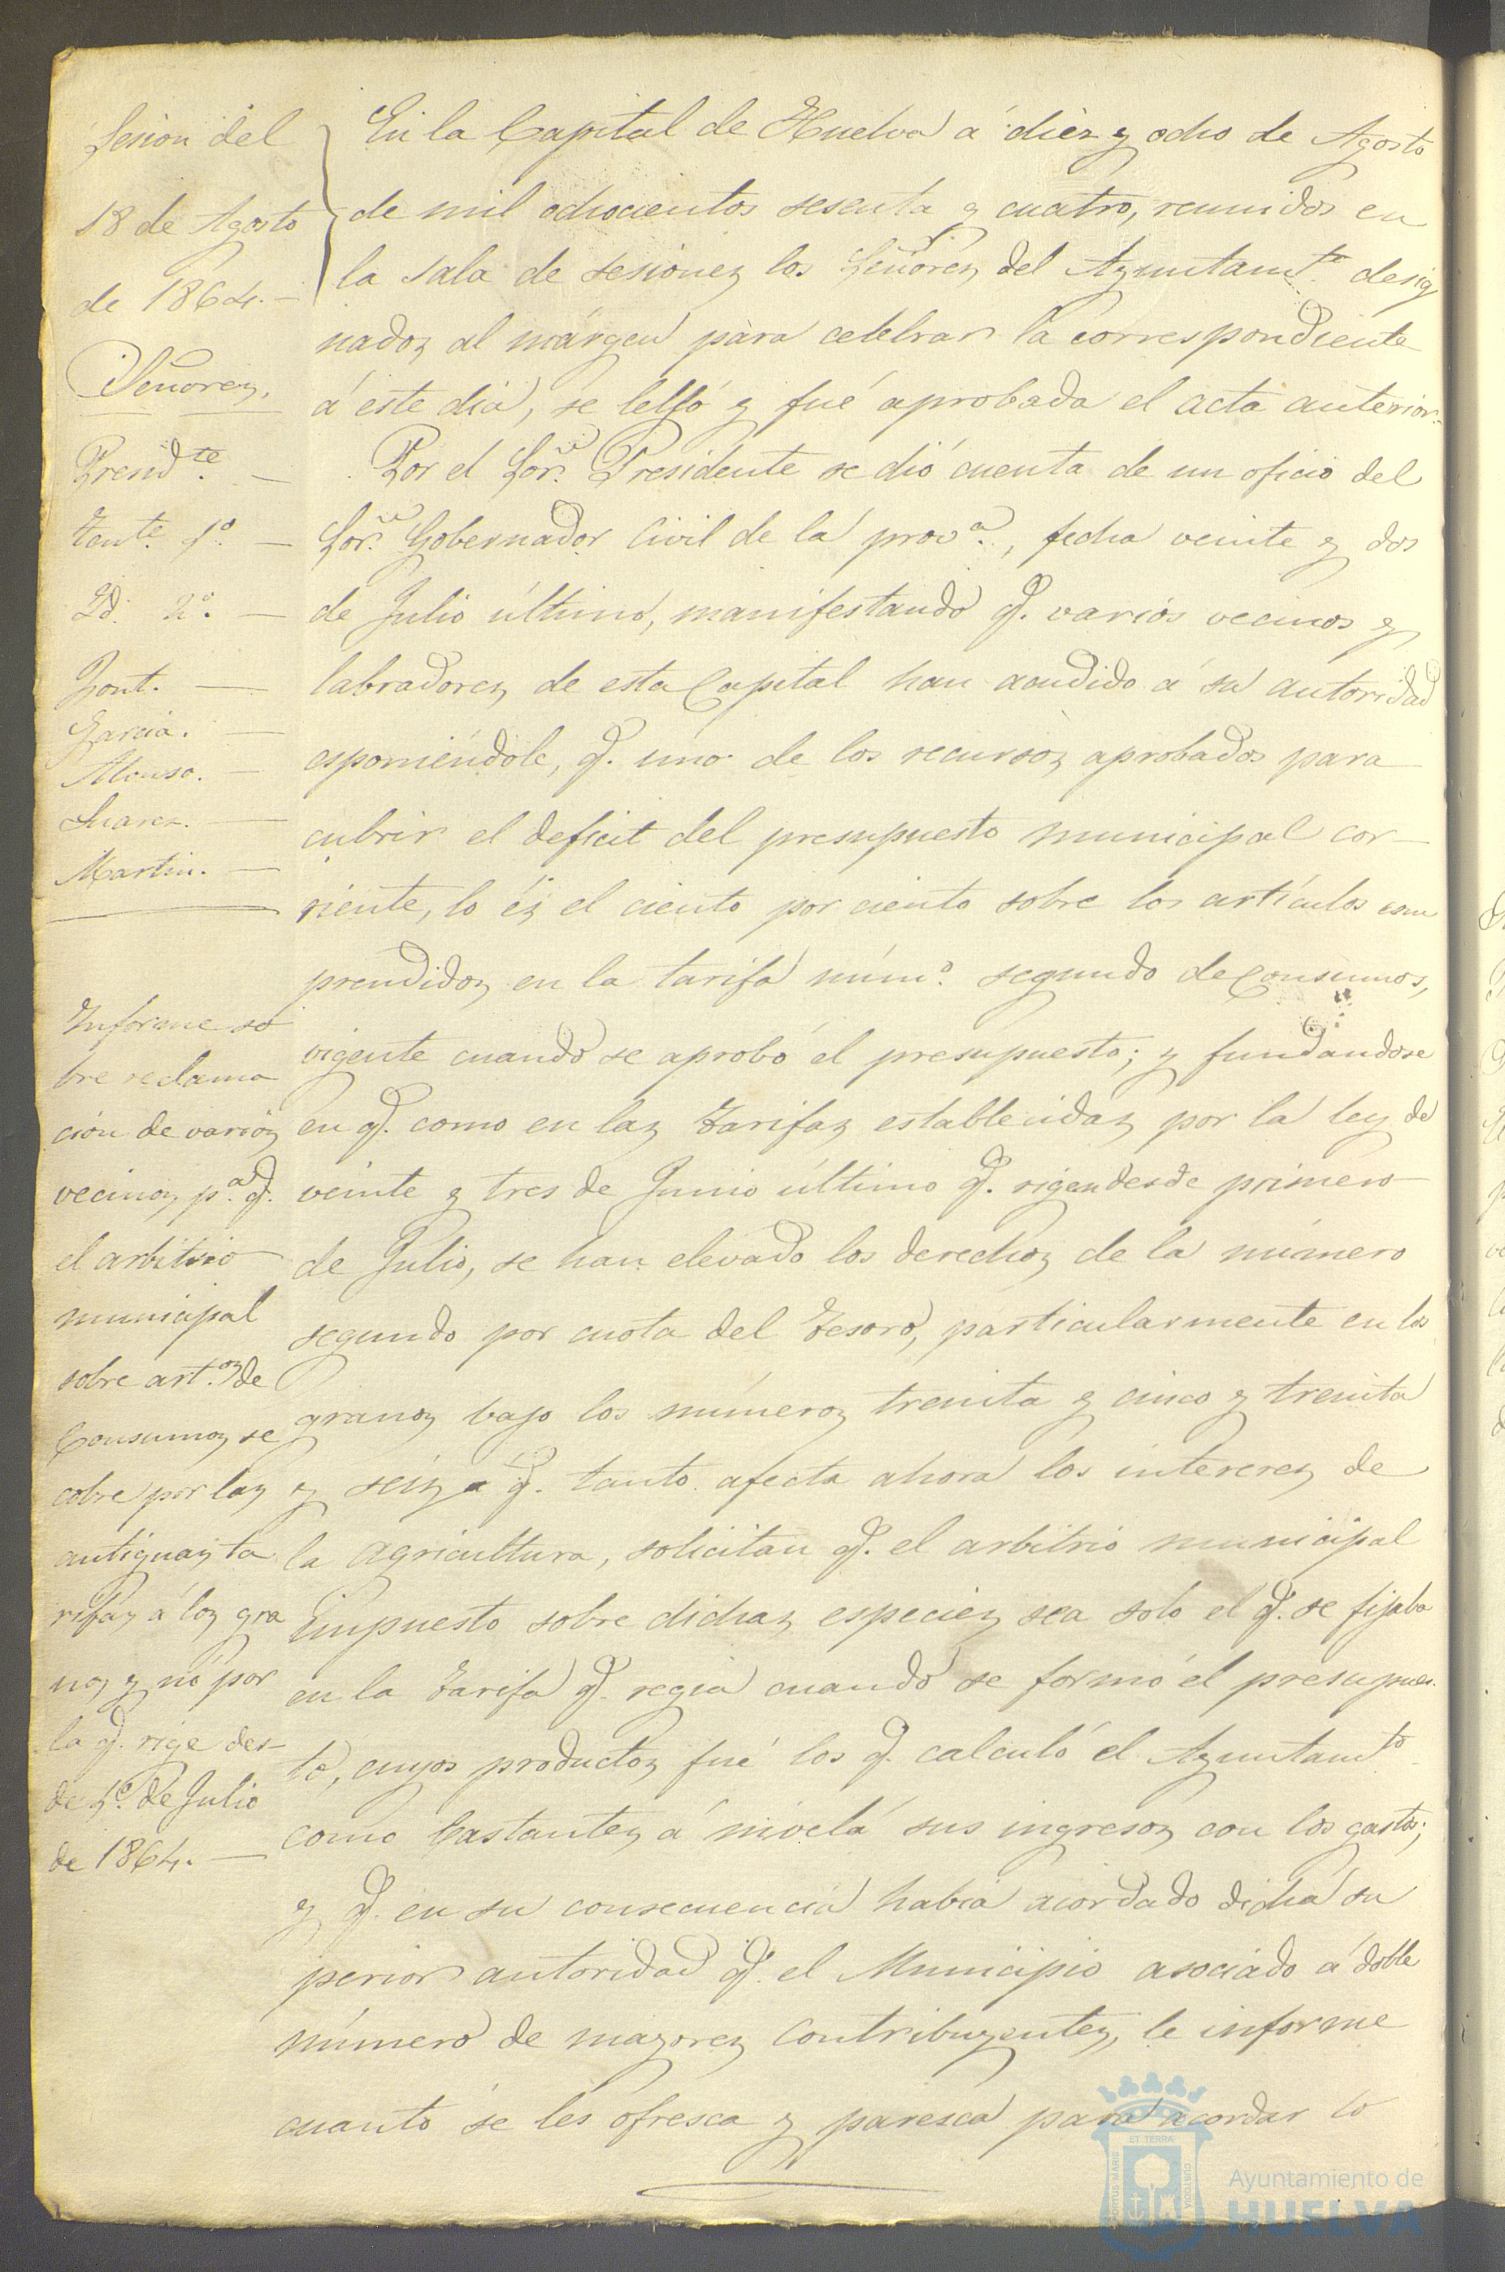 Sesion del
18 de Agosto
de 1864.
Señores.
Presid.te
Tent.e 1.º
Yd. 2.º
Garcia.
Alonso.
Suarez.
Martin.
Informe so
bre reclama
ción de varios
vecinos p.a q.
el arbitrio
municipal
sobre art.os de
Consumos se
cobre por las
antiguas ta
rifas á los gra
nos y nó por
la q. rige des-
de 1.º de Julio
de 1864.
En la Capital de Huelva á diez y ocho de Agosto
de mil ochocientos sesenta y cuatro, reunidos en
la sala de sesiones los Señores del Ayuntam.to desig
nados al márgen para celebrar la correspondiente
á este dia, se lelló y fué aprobada el acta anterior.
Por el Sor. Presidente se dió cuenta de un oficio del
Sor. Gobernador Civil de la prov.a, fecha veinte y dos
de Julio último, manifestando q. varios vecinos y
labradores de esta Capital han acudido á su autoridad
esponiéndole, q. uno de los recursos aprobados para
cubrir el deficit del presupuesto municipal cor-
riente, lo és el ciento por ciento sobre los artículos com
prendidos en la tarifa núm.º segundo de Consumos,
vigente cuando se aprobó el presupuesto; y fundandose
en q. como en las tarifas establecidas por la ley de
veinte y tres de Junio último q. rigen desde primero
de Julio, se han elevado los derechos de la número
segundo por cuota del Tesoro, particularmente en los
granos bajo los números treinta y cinco y treinta
y seis, q. tanto afecta ahora los intereses de
la agricultura, solicitan q. el arbitrio municipal
impuesto sobre dichas especies sea solo el q. se fijaba
en la tarifa q. regia cuando se formó el presupues-
to, cuyos productos fué los q. calculó el Ayuntam.to
como bastantes á nivelá sus ingresos con los gastos;
y q. en su consecuencia habia acordado dicha su
perior autoridad q. el Municipio asociado á doble
número de mayores contribuyentes, le informe
cuanto se les ofresca y paresca para acordar lo
ET TERRÆ
CUSTODIA
PORTUS MARIS
Ayuntamiento de
HUELVA